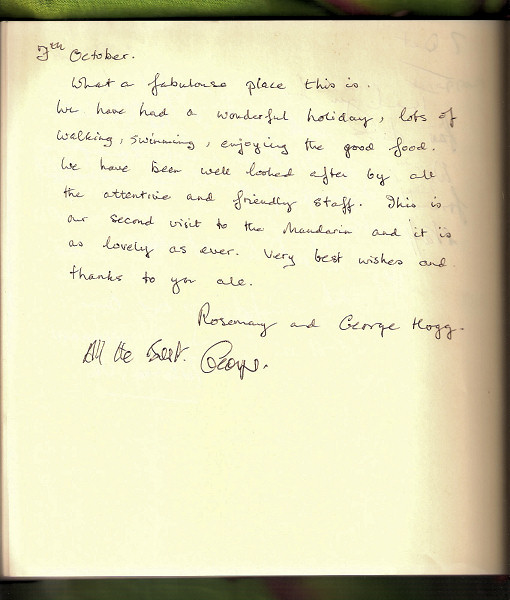 7th October.
What a fabulouse place this is.
We have had a wonderful holiday, lots of
walking, swimming, enjoying the good food.
We have been well looked after by all
the attentive and friendly staff. This is
our second visit to the Mandarin and it is
as lovely as ever. Very best wishes and
thanks to you all.
Rosemary and George Hogg.
All the Best. George.